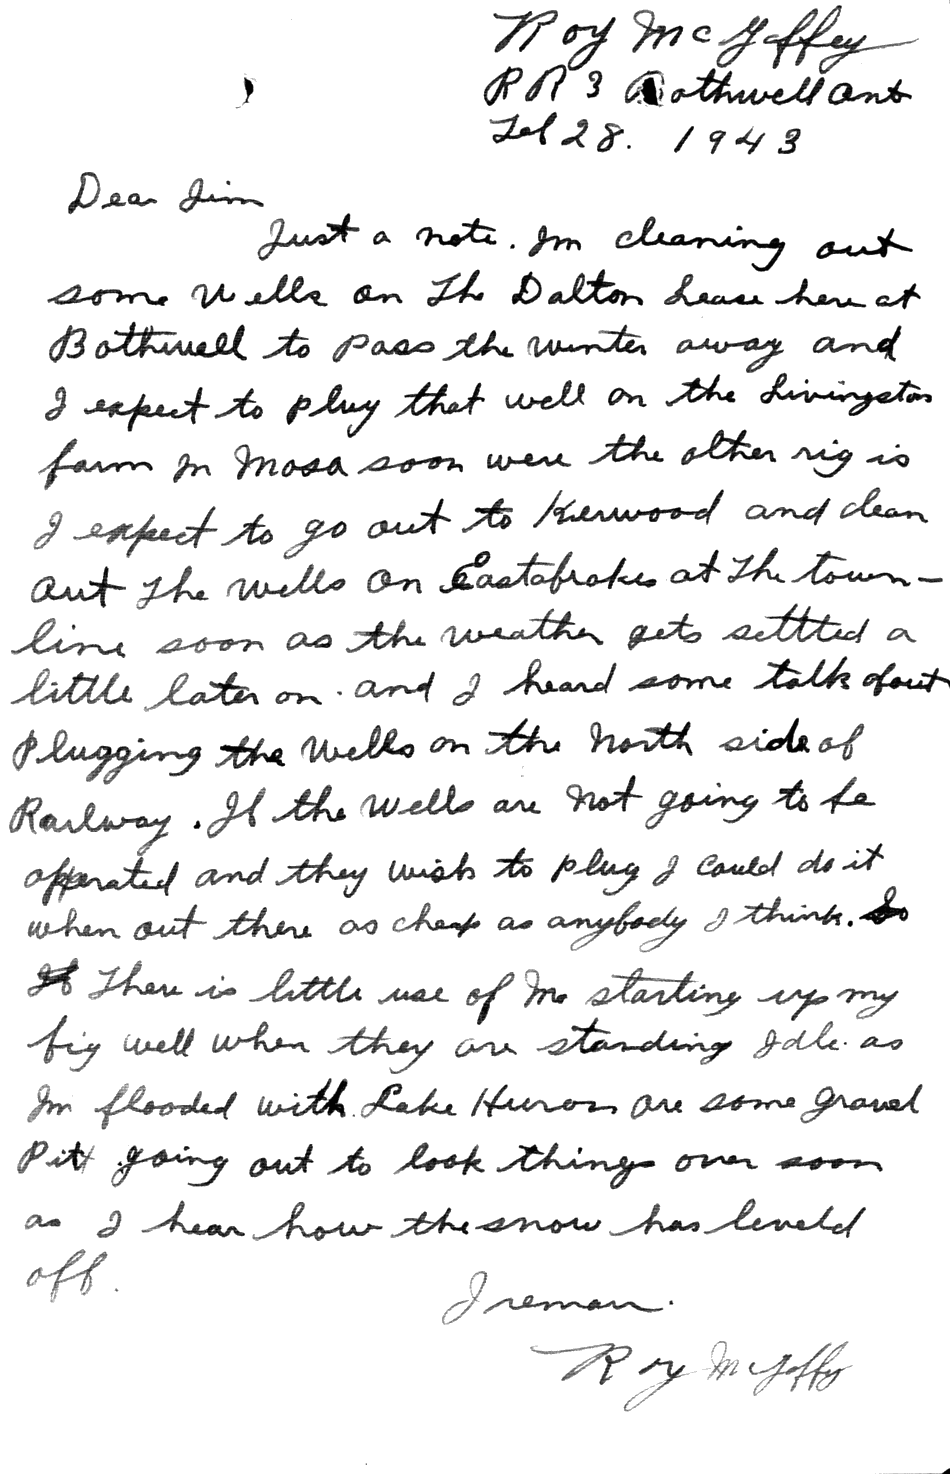 Roy McGaffey
R R 3 Bothwell Ont
Feb 28. 1943
Dear Jim
Just a note. Im cleaning out
some Wells on The Dalton Lease here at
Bothwell to pass the winter away and
I expect to plug that well on the Livingston
farm in Mosa soon were the other rig is
I expect to go out to Kerwood and clean
out The Wells on Eastabrokes at The town-
line soon as the weather gets settted a
little later on. and I heard some talk about
Plugging the Wells on the North side of
Railway. If the Wells are Not going to be
opperated and they wish to plug I could do it
when out there as cheap as anybody I think. So
If There is little use of Me starting up my
big well when they are standing Idle. as
Im flooded with Lake Huron are some gravel
Pitt going out to look things over soon
as I hear how the snow has leveld
off.
I remain.
Roy McGaffey